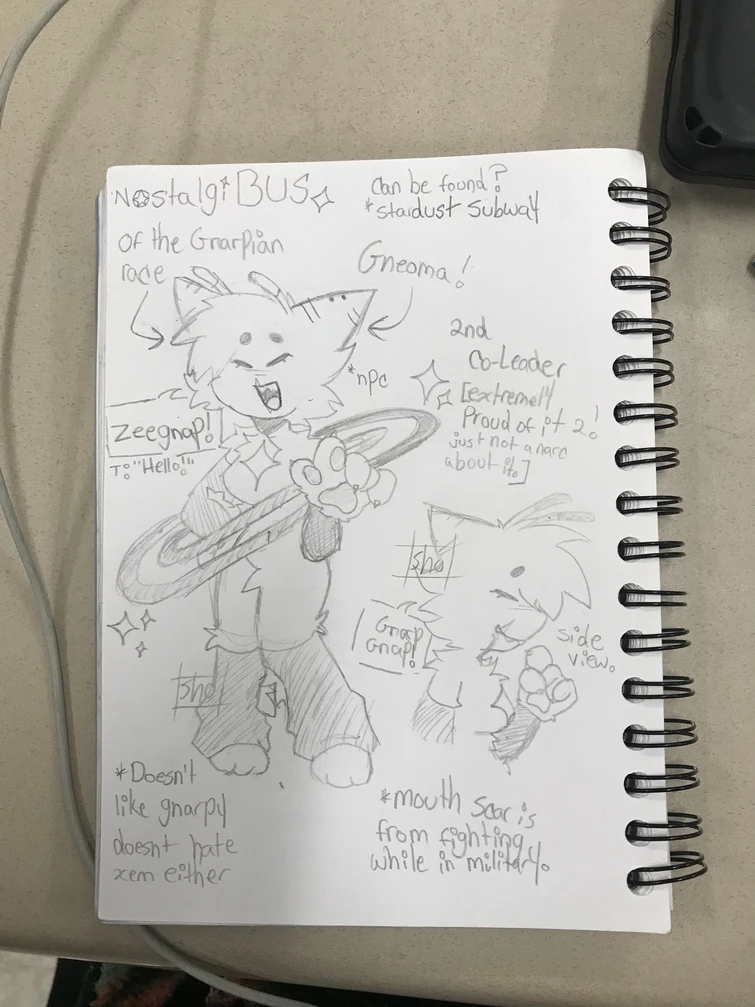 NostalgiBUS
of the Gnarpian
race
Can be found?
*stardust subway
Gneoma!
2nd
Co-Leader
[extremelly
Proud of it 2!
just not a narc
about it.]
*npc
Zeegnap!
T: "Hello!"
sho
Gnarp
Gnap!
side
view.
sho
*Doesn't
like gnarpy
doesnt hate
xem either
*mouth scar is
from fighting
while in military.